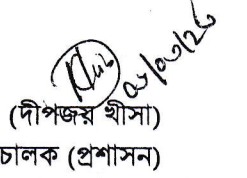 ০৮/০৩/২৬
(দীপজয় খীসা)
চালক (প্রশাসন)